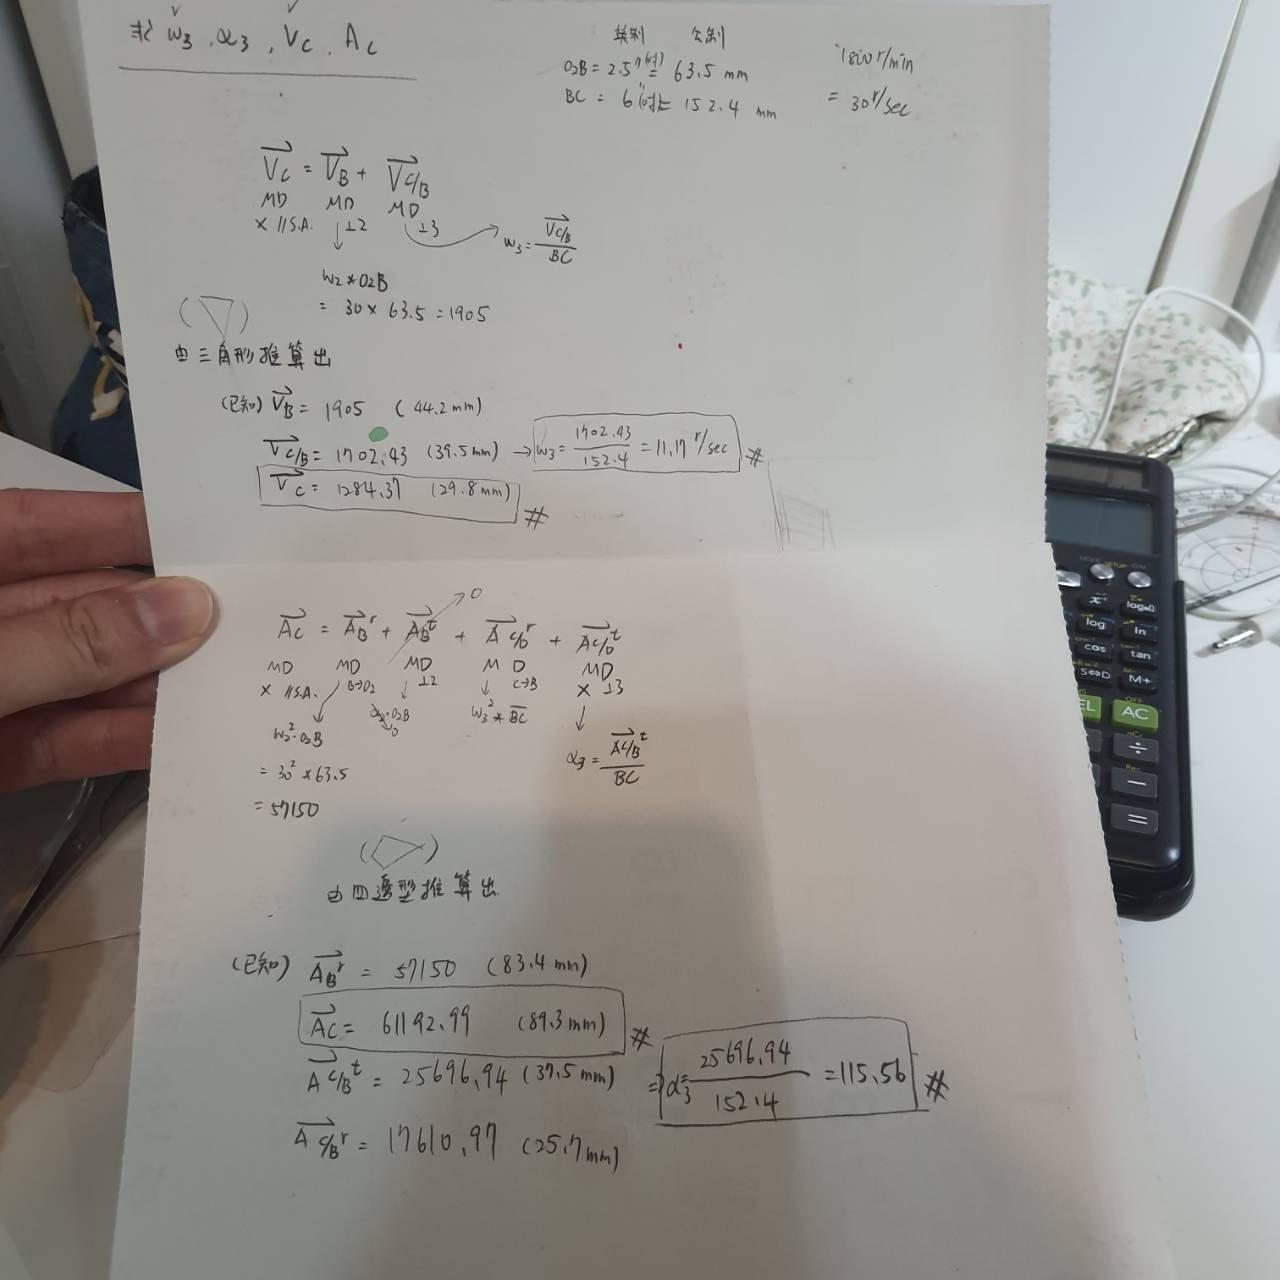 求 ω3 , α3 , Vc , Ac
英制 公制
O2B = 2.5"(吋) = 63.5 mm
BC = 6"(吋) = 152.4 mm
1800 r/min
= 30 r/sec
Vc = VB + VC/B
MD MD MD
× //S.A. ⊥2 ⊥3
ω3 = VC/B / BC
W2 * O2B
= 30 × 63.5 = 1905
由三角形推算出
(已知) VB = 1905 (44.2mm)
VC/B = 1702.43 (39.5mm) → ω3 = 1702.43 / 152.4 = 11.17 r/sec #
Vc = 1284.37 (29.8mm) #
0
Ac = AB^r + AB^t + A C/B^r + A C/B^t
MD MD MD MD MD
× //S.A. B→O2 ⊥2 C→B × ⊥3
W2²·O2B α2·O2B W3² * BC
0
= 30² * 63.5
= 57150
α3 = AC/B^t / BC
( )
由四邊型推算出
(已知) AB^r = 57150 (83.4mm)
Ac = 61192.99 (89.3mm) #
A C/B^t = 25696.94 (37.5mm) ⇒ α3 = 25696.94 / 152.4 = 115.56 #
A C/B^r = 17610.97 (25.7mm)
MODE SETUP ON
x⁻¹ log
log ln
cos tan
S⇔D M+
EL AC
÷
−
=